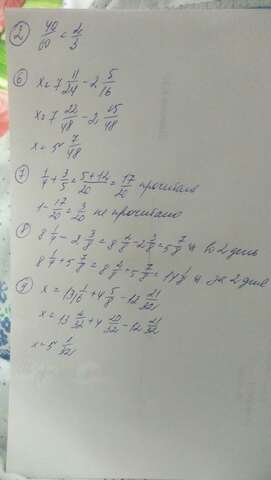 ② 40/60 = 2/3
⑥ x = 7 11/24 - 2 5/16
x = 7 22/48 - 2 15/48
x = 5 7/48
⑦ 1/4 + 3/5 = 5+12/20 = 17/20 прочитали
1 - 17/20 = 3/20 не прочитано
⑧ 8 1/4 - 2 3/8 = 8 2/8 - 2 3/8 = 5 7/8 ч во 2 день
8 1/4 + 5 7/8 = 8 2/8 + 5 7/8 = 14 1/8 ч за 2 дня
⑨ x = 13 1/16 + 4 5/8 - 12 21/32
x = 13 2/32 + 4 20/32 - 12 21/32
x = 5 1/32